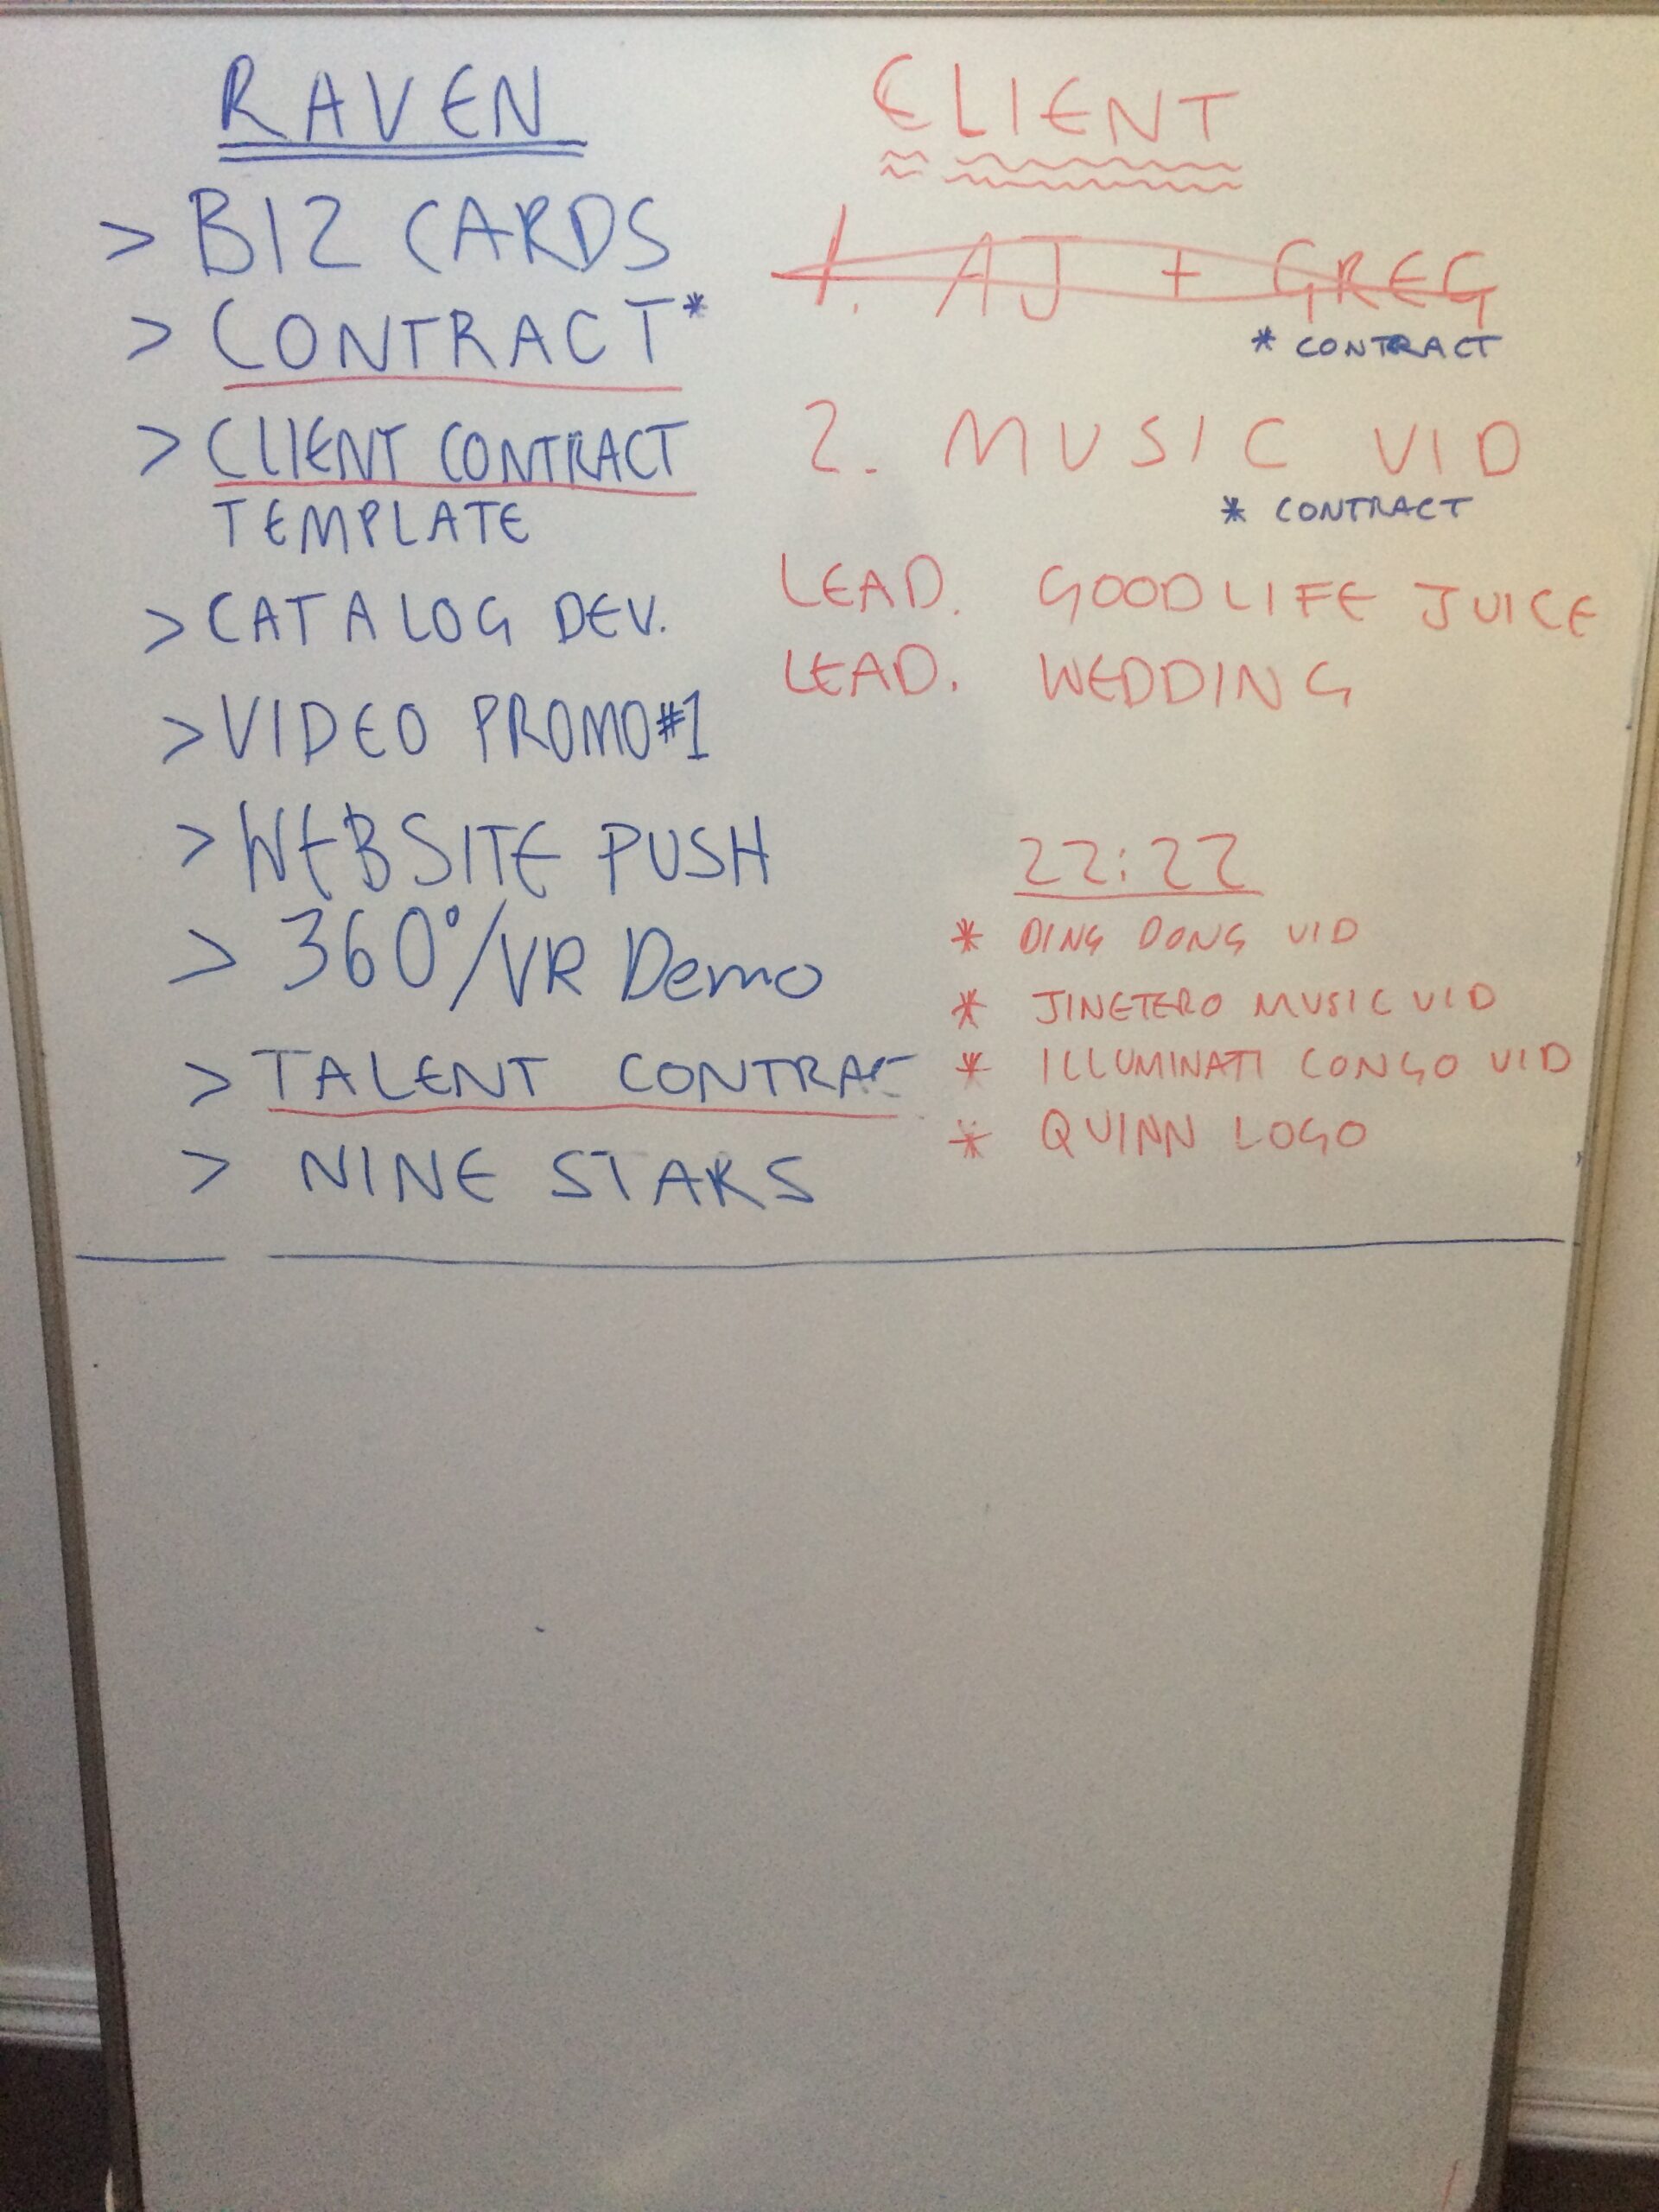 RAVEN
> BIZ CARDS
> CONTRACT*
> CLIENT CONTRACT
TEMPLATE
> CATALOG DEV.
> VIDEO PROMO#1
> WEBSITE PUSH
> 360°/VR Demo
> TALENT CONTRAC
> NINE STARS
CLIENT
1. AJ + GREG
* CONTRACT
2. MUSIC VID
* CONTRACT
LEAD. GOODLIFE JUICE
LEAD. WEDDING
22:22
* DING DONG VID
* JINETERO MUSIC VID
* ILLUMINATI CONGO VID
* QUINN LOGO